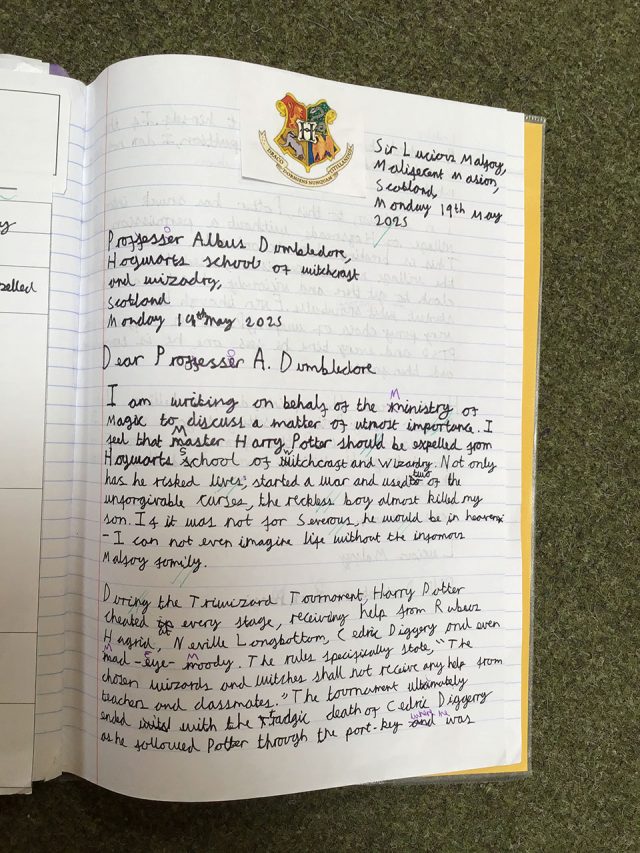 DRACO DORMIENS NUNQUAM TITILLANDUS
H
Sir Lucious Malfoy,
Malificent Masion,
Scotland,
Monday 19th May
2025
Proffeser Albus Dumbledore,
Hogwarts school of witchcraft
and wizadry,
Scotland
Monday 19th May 2025
Dear Proffeser A. Dumbledore
I am writing on behalf of the Ministry of
Magic to discuss a matter of utmost importance. I
feel that Master Harry Potter should be expelled from
Hogwarts School of Witchcraft and Wizardry. Not only
has he risked lives; started a war and used two of the
unforgivable curses, the reckless boy almost killed my
son. If it was not for Severous, he would be in heaven
- I can not even imagine life without the infamous
Malfoy family.
During the Triwizard Tournament, Harry Potter
cheated at every stage, receiving help from Rubeus
Hagrid, Neville Longbottom, Cedric Diggery and even
Mad-Eye-Moody. The rules specifically state, "The
chosen wizards and witches shall not receive any help from
teachers and classmates." The tournament ultimately
ended with the tradgic death of Cedric Diggerry
as he followed Potter through the port-key where he was
y
elled